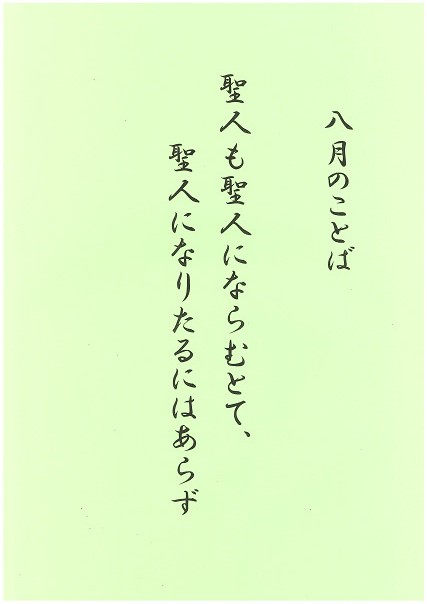 八月のことば
聖人も聖人にならむとて、
聖人になりたるにはあらず